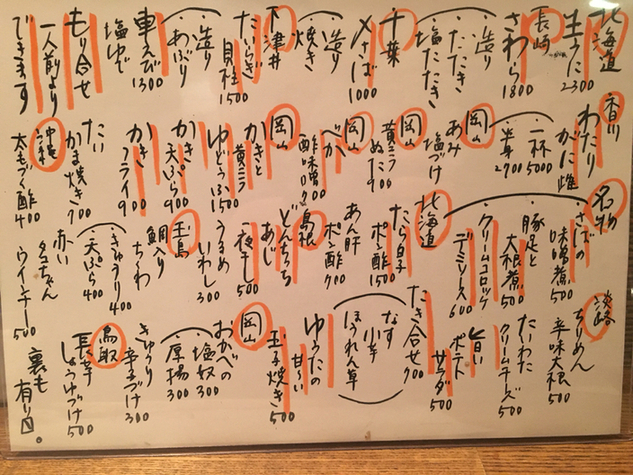 北海道
生うに 2300
長崎
さわら 1800
造り
たたき
塩たたき
千葉
〆さば 1000
造り
焼き
下津井
たいらぎ
貝柱 1500
造り
あぶり
車えび 1300
塩ゆで
もり合せ
一人前より
できます
香川
わたり
がに 雌
一杯 5000
半身 2700
岡山
あみ
塩づけ
岡山
黄ニラ
ぬた 900
岡山
べか
酢味噌
岡山
かきと
黄ニラ
ゆどうふ 1500
かき
天ぷら 900
かき
フライ 900
たい
かま焼き 900
沖縄
太もづく酢 400
名物
さばの
味噌煮 500
豚足と
大根煮 500
クリームコロッケ
デミソース 600
北海道
たら白子
ポン酢 1500
あん肝
ポン酢 900
島根
どんちっち
あじ
一夜干し 500
うるめ
いわし 300
玉島
鯛入り
ちくわ
きゅうり 400
天ぷら 400
赤い
タコちゃん
ウインナー 500
淡路
ちりめん
辛味大根 500
たいわた
クリームチーズ 500
旨い
ポテト
サラダ 500
たき合せ 900
なす
小芋
ほうれん草
ゆうたの
甘〜い
玉子焼き 500
岡山
おかべの
塩奴 300
厚揚 300
きゅうり
辛子づけ 300
鳥取
長芋
しょうゆづけ 500
裏も
有り〼。